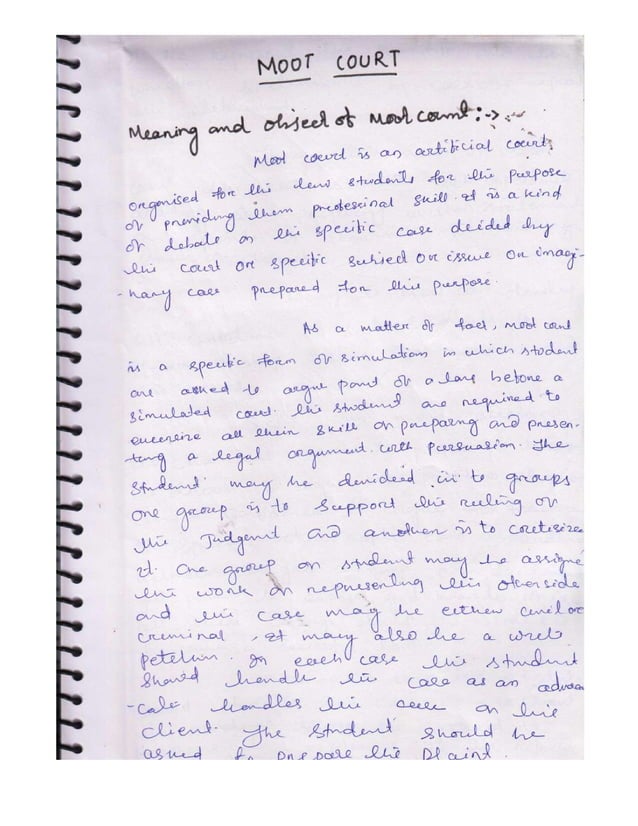 MOOT COURT
Meaning and object of Moot Court :->
Moot court is an artificial court,
organised for the law students for the purpose
of providing them professional skill. It is a kind
of debate on the specific case decided by
the court or specific subject or issue or imagi-
-nary case prepared for this purpose.
As a matter of fact, moot court
is a specific form of simulation in which student
are asked to argue point of a law before a
simulated court. The student are required to
exercise all their skill of preparing and presen-
ting a legal argument with persuasion. The
student may be divided in to groups
one group is to support the ruling of
the Judgement and another is to
it. One group of student may be assigne
the work of representing the otherside
and the case may be either civil or
criminal, it may also be a writ
petition. In each case the student
should handle the case as an advo
-cate handles the case of his
client. The student should be
asked to prepare the plaint.